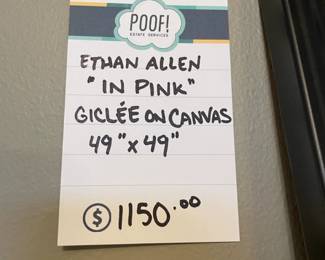 POOF!
ESTATE SERVICES
ETHAN ALLEN
"IN PINK"
GICLÉE ON CANVAS
49" x 49"
$ 1150.00